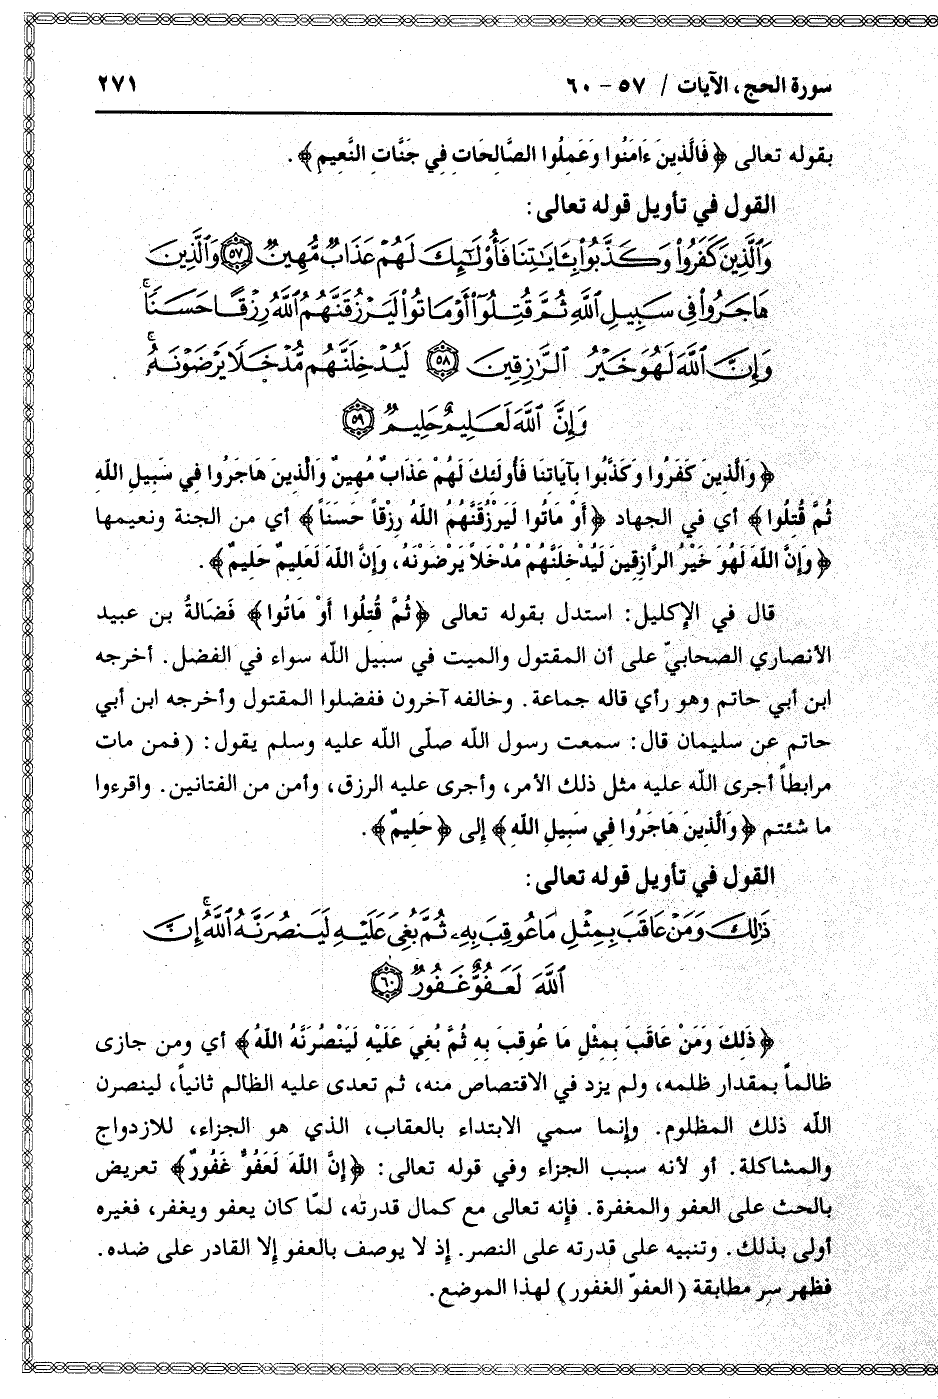 سورة الحج، الآيات / ٥٧ - ٦٠
٢٧١
بقوله تعالى ﴿فَالَّذِينَ ءَامَنُوا وَعَمِلُوا الصَّالِحَاتِ فِي جَنَّاتِ النَّعِيمِ﴾.
القول في تأويل قوله تعالى:
وَالَّذِينَ كَفَرُواْ وَكَذَّبُواْ بِـَٔايَاتِنَا فَأُوْلَٰٓئِكَ لَهُمْ عَذَابٌ مُّهِينٌ ٥٧ وَالَّذِينَ
هَاجَرُواْ فِي سَبِيلِ اللَّهِ ثُمَّ قُتِلُوٓاْ أَوْ مَاتُواْ لَيَرْزُقَنَّهُمُ اللَّهُ رِزْقًا حَسَنًا ۚ
وَإِنَّ اللَّهَ لَهُوَ خَيْرُ الرَّازِقِينَ ٥٨ لَيُدْخِلَنَّهُم مُّدْخَلًا يَرْضَوْنَهُ ۚ
وَإِنَّ اللَّهَ لَعَلِيمٌ حَلِيمٌ ٥٩
﴿وَالَّذِينَ كَفَرُوا وَكَذَّبُوا بِآيَاتِنَا فَأُولَئِكَ لَهُمْ عَذَابٌ مُهِينٌ وَالَّذِينَ هَاجَرُوا فِي سَبِيلِ اللّه
ثُمَّ قُتِلُوا﴾ أي في الجهاد ﴿أَوْ مَاتُوا لَيَرْزُقَنَّهُمُ اللّهُ رِزْقاً حَسَناً﴾ أي من الجنة ونعيمها
﴿وَإِنَّ اللّهَ لَهُوَ خَيْرُ الرَّازِقِينَ لَيُدْخِلَنَّهُمْ مُدْخَلاً يَرْضَوْنَهُ، وَإِنَّ اللّهَ لَعَلِيمٌ حَلِيمٌ﴾.
قال في الإكليل: استدل بقوله تعالى ﴿ثُمَّ قُتِلُوا أَوْ مَاتُوا﴾ فَضَالةُ بن عبيد
الأنصاري الصحابيّ على أن المقتول والميت في سبيل اللّه سواء في الفضل. أخرجه
ابن أبي حاتم وهو رأي قاله جماعة. وخالفه آخرون ففضلوا المقتول وأخرجه ابن أبي
حاتم عن سليمان قال: سمعت رسول اللّه صلّى اللّه عليه وسلم يقول: (فمن مات
مرابطاً أجرى اللّه عليه مثل ذلك الأمر، وأجرى عليه الرزق، وأمن من الفتانين. واقرءوا
ما شئتم ﴿وَالَّذِينَ هَاجَرُوا فِي سَبِيلِ اللّهِ﴾ إلى ﴿حَلِيمٌ﴾.
القول في تأويل قوله تعالى:
ذَٰلِكَ وَمَنْ عَاقَبَ بِمِثْلِ مَا عُوقِبَ بِهِۦ ثُمَّ بُغِيَ عَلَيْهِ لَيَنصُرَنَّهُ اللَّهُ ۚ إِنَّ
اللَّهَ لَعَفُوٌّ غَفُورٌ ٦٠
﴿ذَلِكَ وَمَنْ عَاقَبَ بِمِثْلِ مَا عُوقِبَ بِهِ ثُمَّ بُغِيَ عَلَيْهِ لَيَنْصُرَنَّهُ اللّهُ﴾ أي ومن جازى
ظالماً بمقدار ظلمه، ولم يزد في الاقتصاص منه، ثم تعدى عليه الظالم ثانياً، لينصرن
اللّه ذلك المظلوم. وإنما سمي الابتداء بالعقاب، الذي هو الجزاء، للازدواج
والمشاكلة. أو لأنه سبب الجزاء وفي قوله تعالى: ﴿إِنَّ اللّهَ لَعَفُوٌّ غَفُورٌ﴾ تعريض
بالحث على العفو والمغفرة. فإنه تعالى مع كمال قدرته، لمّا كان يعفو ويغفر، فغيره
أولى بذلك. وتنبيه على قدرته على النصر. إذ لا يوصف بالعفو إلا القادر على ضده.
فظهر سر مطابقة (العفوّ الغفور) لهذا الموضع.